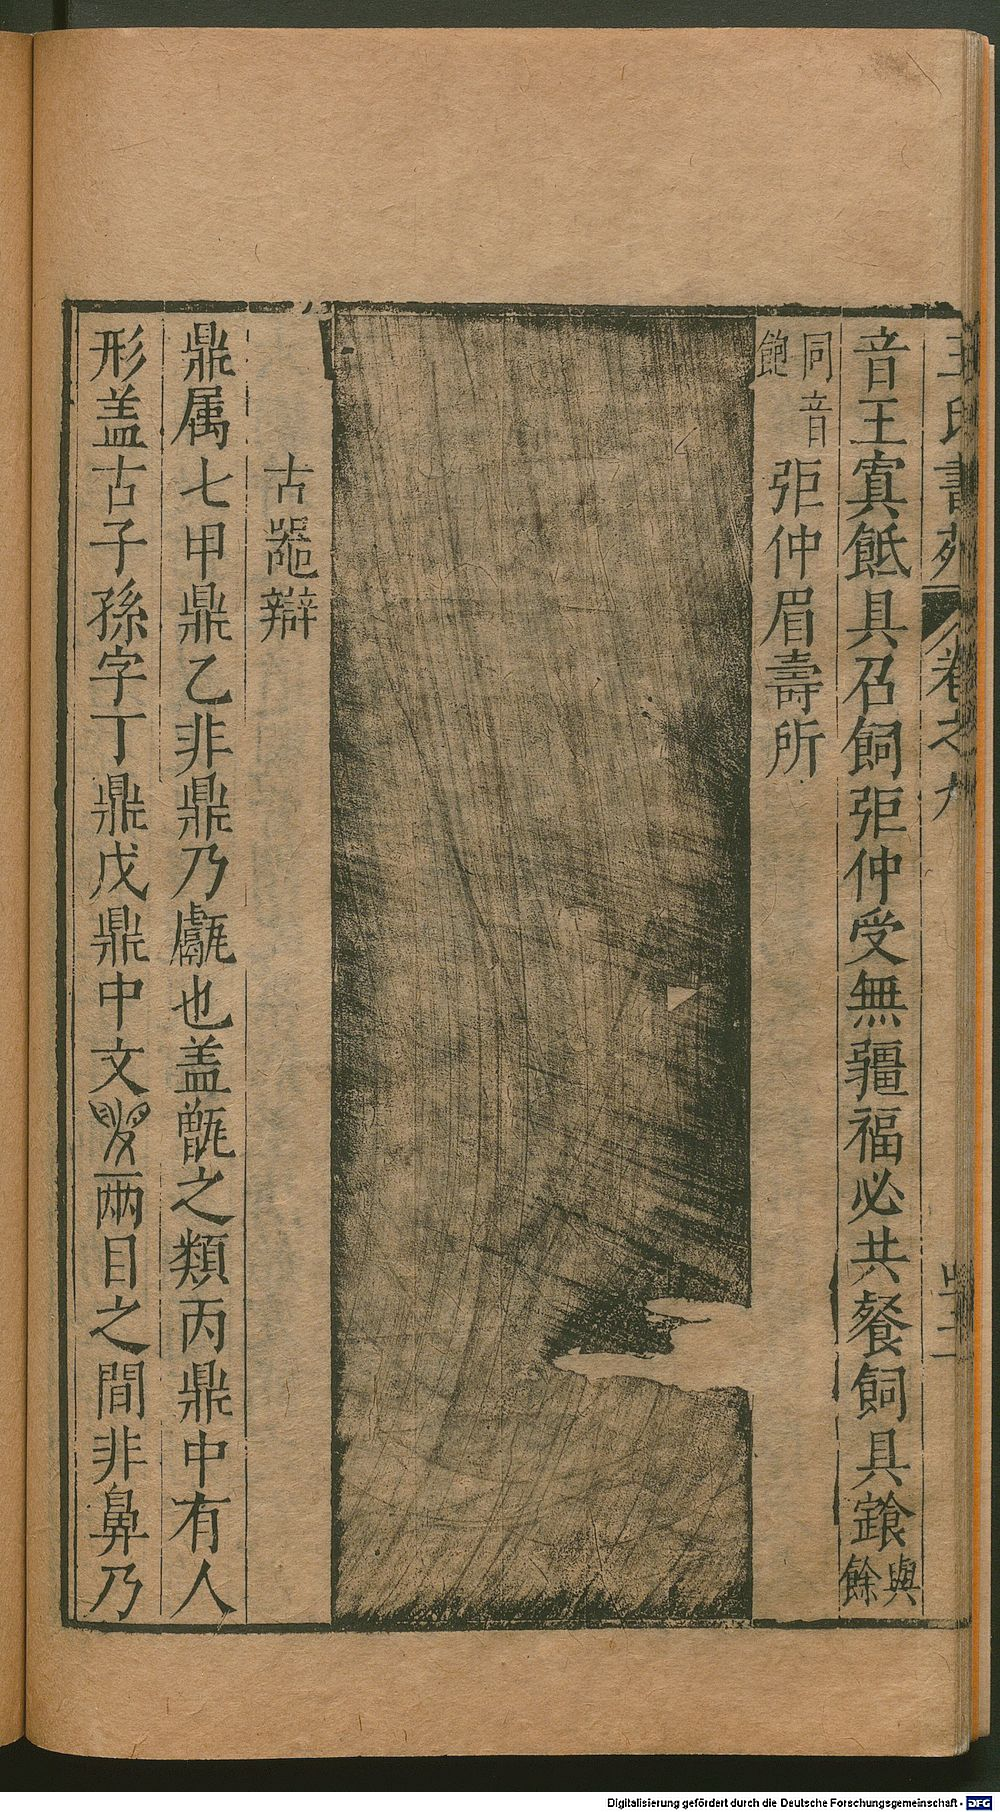 王氏書苑 卷之九
音王寘飿具召飼弡仲受無彊福必共餐飼具䭉與餘
同音飽弡仲眉壽所
古器辯
鼎属七甲鼎乙非鼎乃甗也盖甑之類丙鼎中有人
形盖古子孫字丁鼎戊鼎中文兩目之間非鼻乃
Digitalisierung gefördert durch die Deutsche Forschungsgemeinschaft - DFG